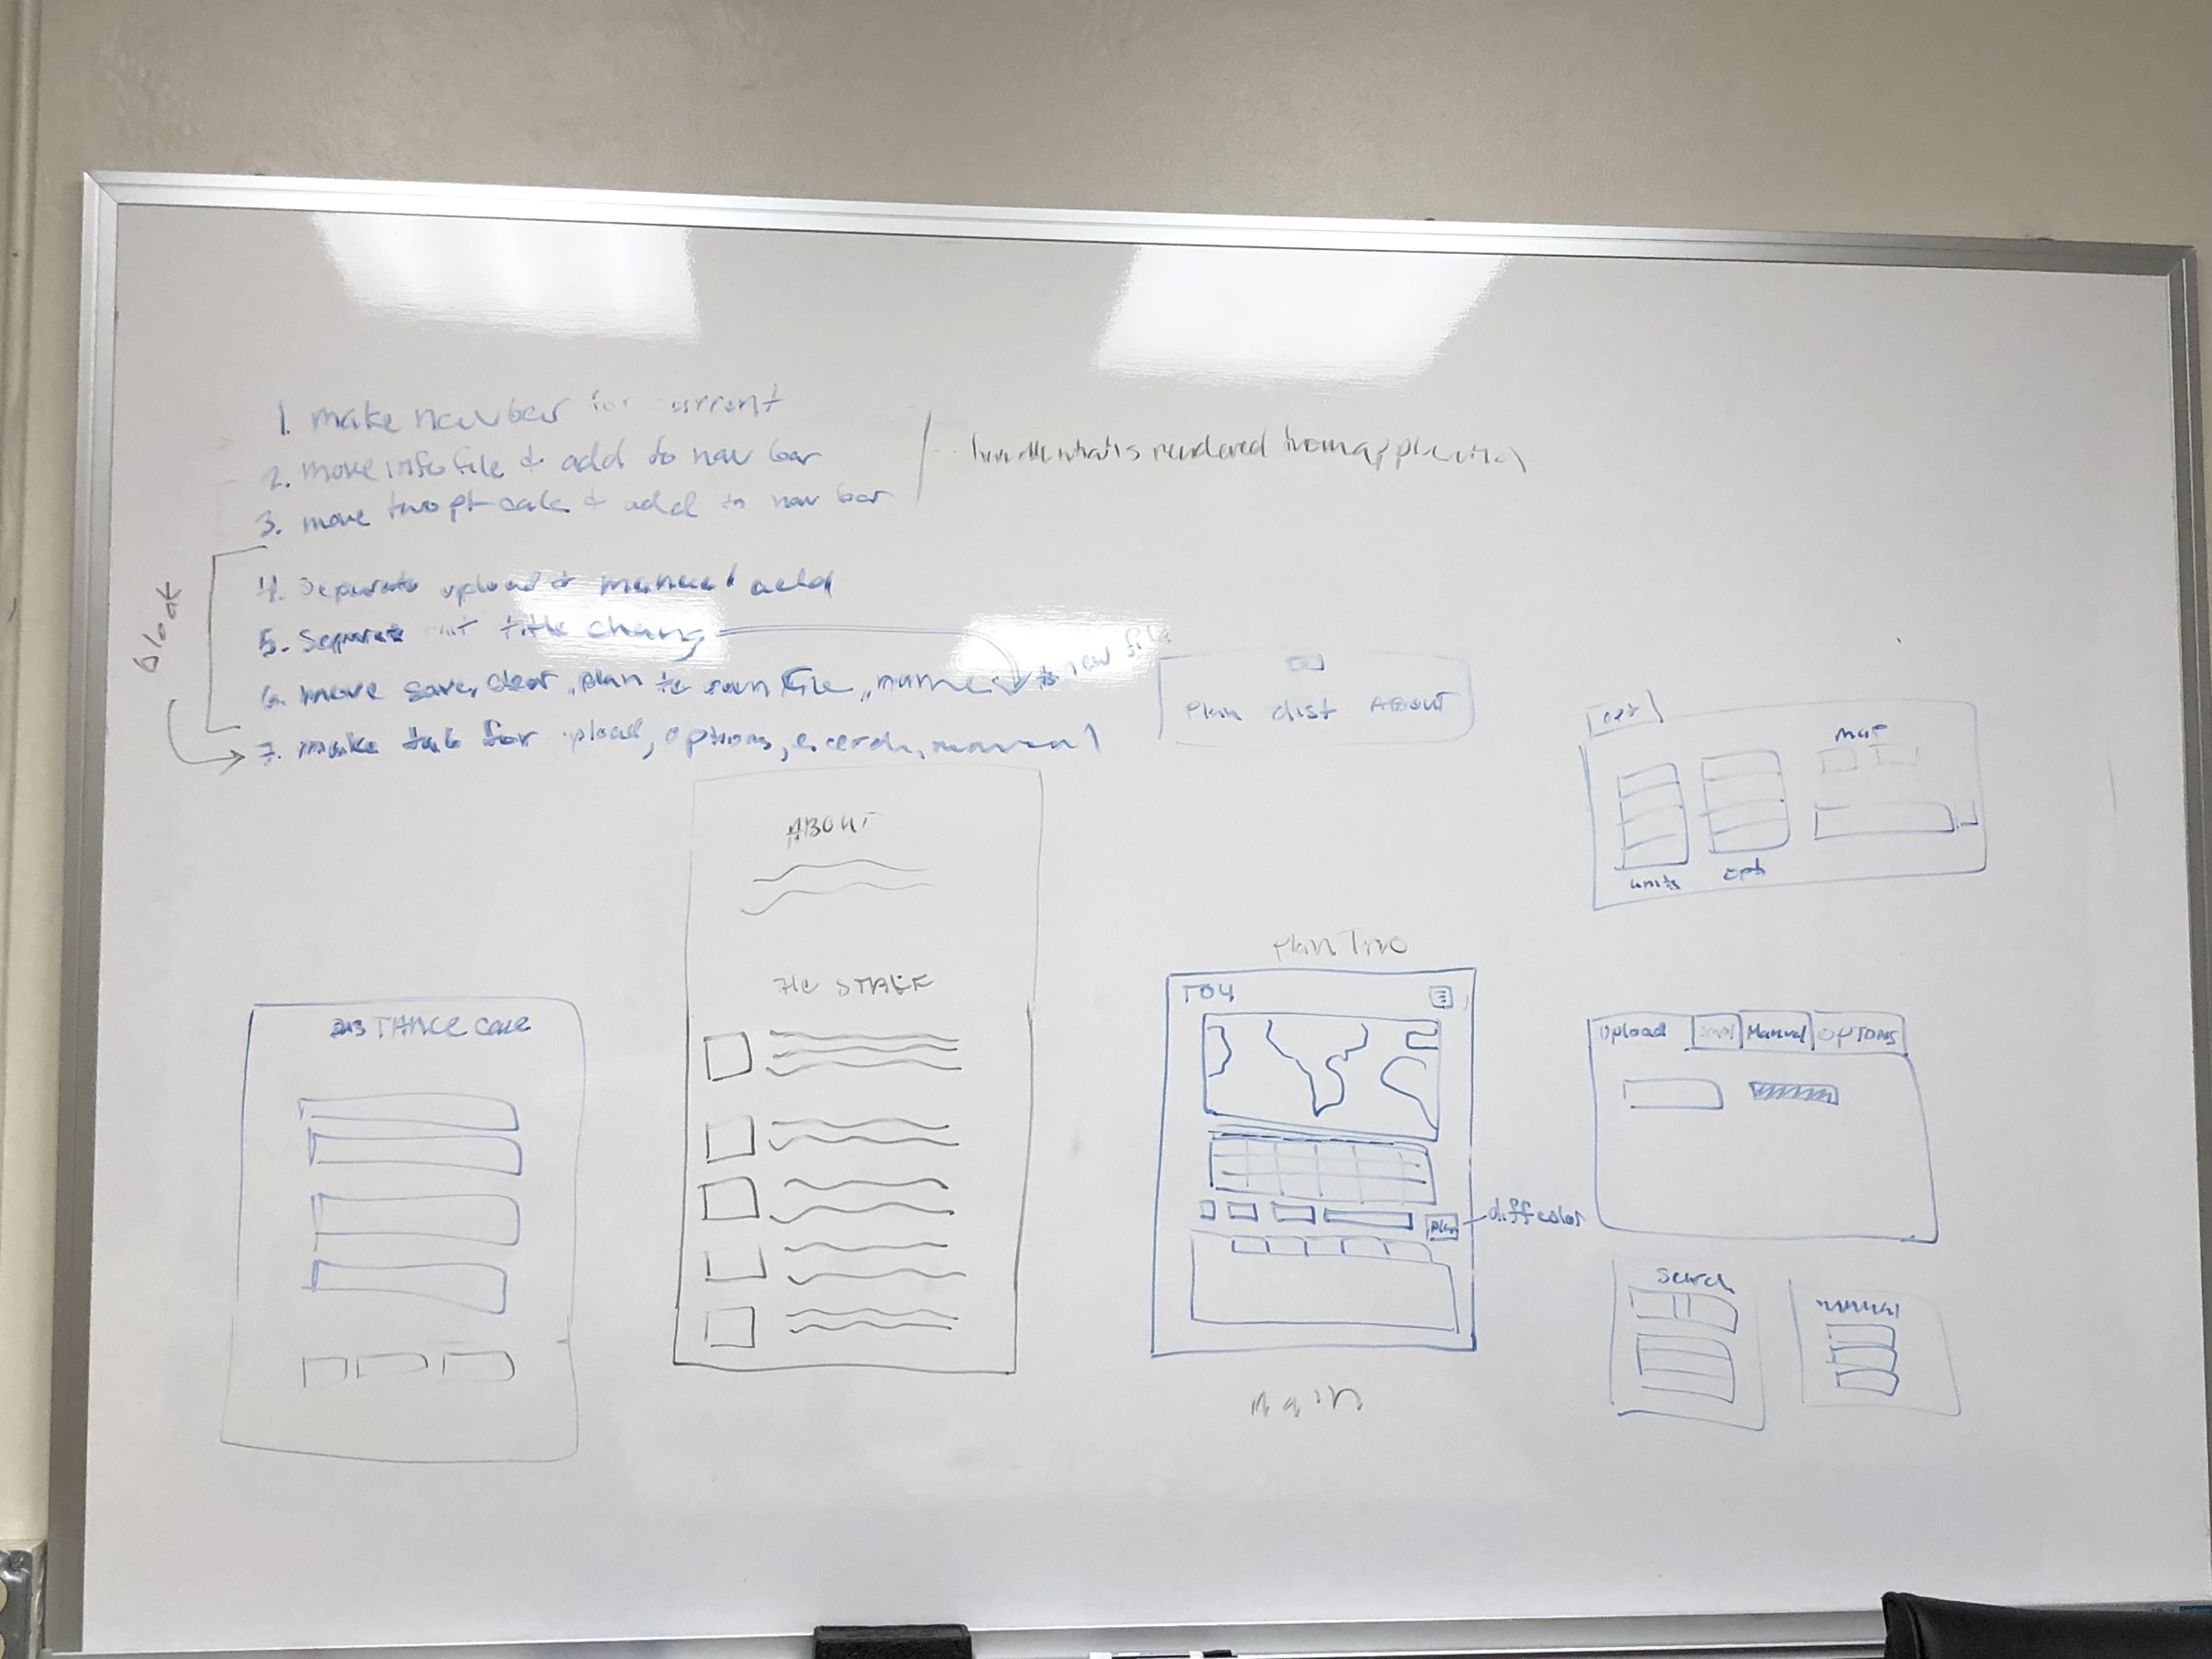 1. make nav bar for current
2. move info file & add to nav bar
3. move two pt calc & add to nav bar
handle what is rendered from application
4. Separate upload & manual add
5. Separate out title change
6. move save, clear, plan to own file, to new file
7. make tab for upload, options, search, manual
block
Plan dist ABOUT
opt
map
units opt
ABOUT
THE STAFF
DISTANCE CALC
Plan Trip
T04
plan
diff color
Main
Upload Manual OPTIONS
Search
manual